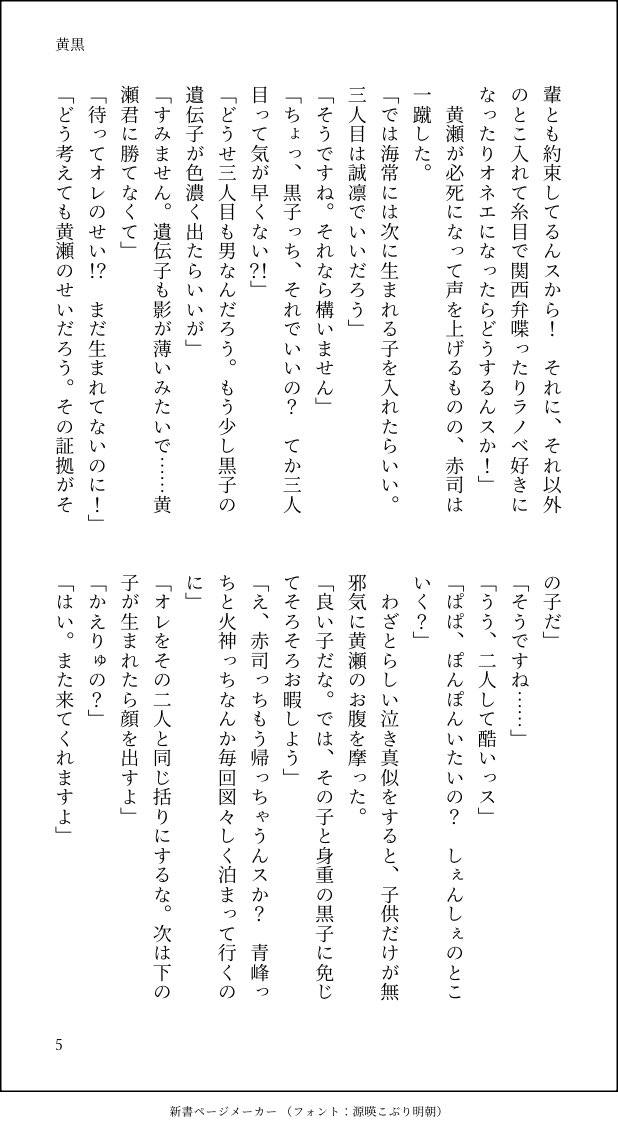 黄黒
輩とも約束してるんスから！　それに、それ以外
のとこ入れて糸目で関西弁喋ったりラノベ好きに
なったりオネエになったらどうするんスか！」
　黄瀬が必死になって声を上げるものの、赤司は
一蹴した。
「では海常には次に生まれる子を入れたらいい。
三人目は誠凛でいいだろう」
「そうですね。それなら構いません」
「ちょっ、黒子っち、それでいいの？　てか三人
目って気が早くない?!」
「どうせ三人目も男なんだろう。もう少し黒子の
遺伝子が色濃く出たらいいが」
「すみません。遺伝子も影が薄いみたいで……黄
瀬君に勝てなくて」
「待ってオレのせい!?　まだ生まれてないのに！」
「どう考えても黄瀬のせいだろう。その証拠がそ
の子だ」
「そうですね……」
「うう、二人して酷いっス」
「ぱぱ、ぽんぽんいたいの？　しぇんしぇのとこ
いく？」
　わざとらしい泣き真似をすると、子供だけが無
邪気に黄瀬のお腹を摩った。
「良い子だな。では、その子と身重の黒子に免じ
てそろそろお暇しよう」
「え、赤司っちもう帰っちゃうんスか？　青峰っ
ちと火神っちなんか毎回図々しく泊まって行くの
に」
「オレをその二人と同じ括りにするな。次は下の
子が生まれたら顔を出すよ」
「かえりゅの？」
「はい。また来てくれますよ」
5
新書ページメーカー（フォント：源暎こぶり明朝）